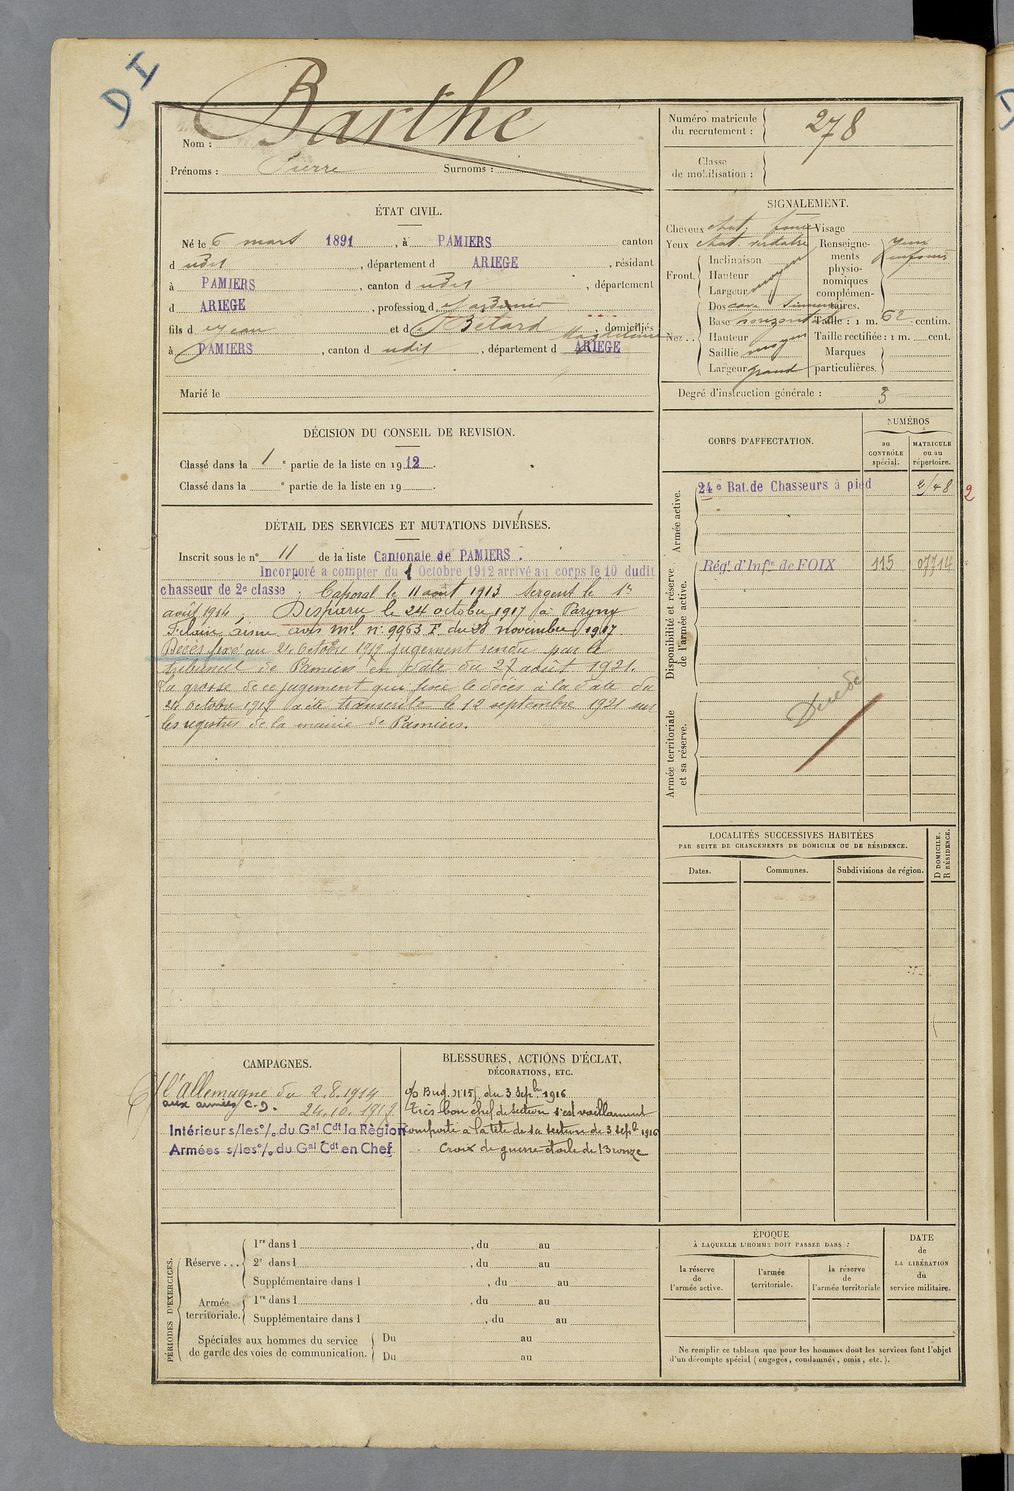 DI
Barthe
Nom :
Prénoms : Pierre Surnoms :
ÉTAT CIVIL.
Né le 6 mars 1891, à PAMIERS canton
d udit, département d ARIEGE, résidant
à PAMIERS, canton d udit, département
d ARIEGE, profession d Jardinier
fils d Jean et d Bélard Magdeleine, domiciliés
à PAMIERS, canton d udit, département d ARIEGE
Marié le
DÉCISION DU CONSEIL DE REVISION.
Classé dans la 1e partie de la liste en 1912.
Classé dans la e partie de la liste en 19
DÉTAIL DES SERVICES ET MUTATIONS DIVERSES.
Inscrit sous le n° 11 de la liste Cantonale de PAMIERS.
Incorporé a compter du 1 Octobre 1912 arrivé au corps le 10 dudit
chasseur de 2e classe ; Caporal le 11 août 1913 Sergent le 1er
août 1914 ; Disparu le 24 octobre 1917 à Pargny
Filain aisne avis ml n° 9963 F. du 28 novembre 1917
Décès fixé au 24 Octobre 1917 jugement rendu par le
tribunal de Pamiers en date du 27 août 1921.
La grosse de ce jugement qui fixe le décès à la date du
24 Octobre 1917 a été transcrite le 12 septembre 1921 sur
les registres de la mairie de Pamiers.
CAMPAGNES.
C/ l'allemagne du 2.8.1914
aux armées C.D. 24.10.1917
Intérieur s/les o/o du Gal Cdt la Région
Armées s/les o/o du Gal Cdt en Chef
BLESSURES, ACTIONS D'ÉCLAT,
DÉCORATIONS, ETC.
o/o Brig. N° 151 du 3 Sepbre 1916
Très bon chef de section s'est vaillamment
comporté à la tête de sa section du 3 sepbre 1916
Croix de guerre étoile de Bronze
PÉRIODES D'EXERCICES.
Réserve ...
1re dans l , du au
2e dans l , du au
Supplémentaire dans l , du au
Armée territoriale.
1re dans l , du au
Supplémentaire dans l , du au
Spéciales aux hommes du service
de garde des voies de communication.
Du au
Du au
Numéro matricule
du recrutement : 278
Classe
de mobilisation :
SIGNALEMENT.
Cheveux chat. foncé
Yeux chat verdatre
Front.
Inclinaison
Hauteur moyen
Largeur
Nez ..
Dos cave
Base horizontale
Hauteur moyen
Saillie moy
Largeur grand
Visage
Renseignements
physionomiques
complémentaires.
Yeux
enfoncés
Taille : 1 m. 62 centim.
Taille rectifiée : 1 m. cent.
Marques
particulières.
Degré d'instruction générale : 3
CORPS D'AFFECTATION.
NUMÉROS
au
CONTRÔLE
spécial.
MATRICULE
ou au
répertoire.
Armée active.
24e Bat. de Chasseurs à pied 2/48 2
Disponibilité et réserve
de l'armée active.
Régt. d'Infie de FOIX 115 07714
Armée territoriale
et sa réserve.
Décédé
LOCALITÉS SUCCESSIVES HABITÉES
PAR SUITE DE CHANGEMENTS DE DOMICILE OU DE RÉSIDENCE.
Dates. Communes. Subdivisions de région.
D DOMICILE.
R RÉSIDENCE.
ÉPOQUE
À LAQUELLE L'HOMME DOIT PASSER DANS :
la réserve
de
l'armée active.
l'armée
territoriale.
la réserve
de
l'armée territoriale
DATE
de
LA LIBÉRATION
du
service militaire.
Ne remplir ce tableau que pour les hommes dont les services font l'objet
d'un décompte spécial (engagés, condamnés, omis, etc.).